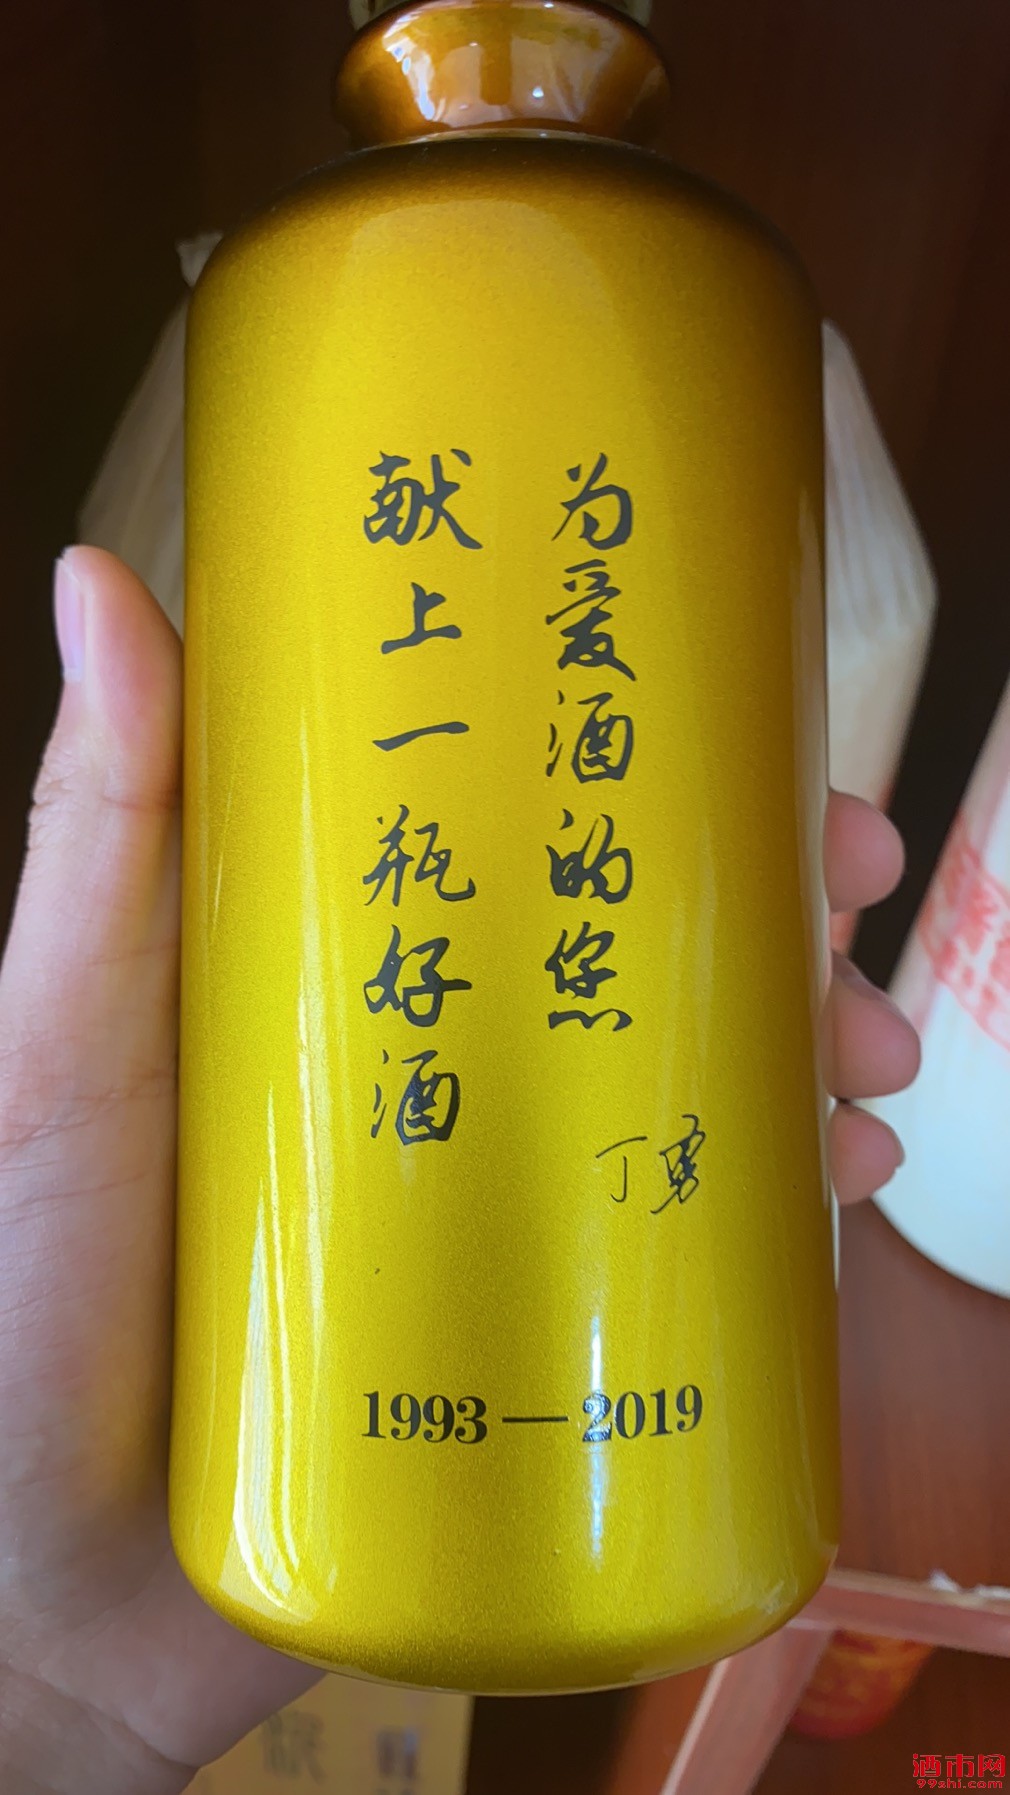 为爱酒的您
献上一瓶好酒
丁勇
1993—2019
酒市网
99shi.com